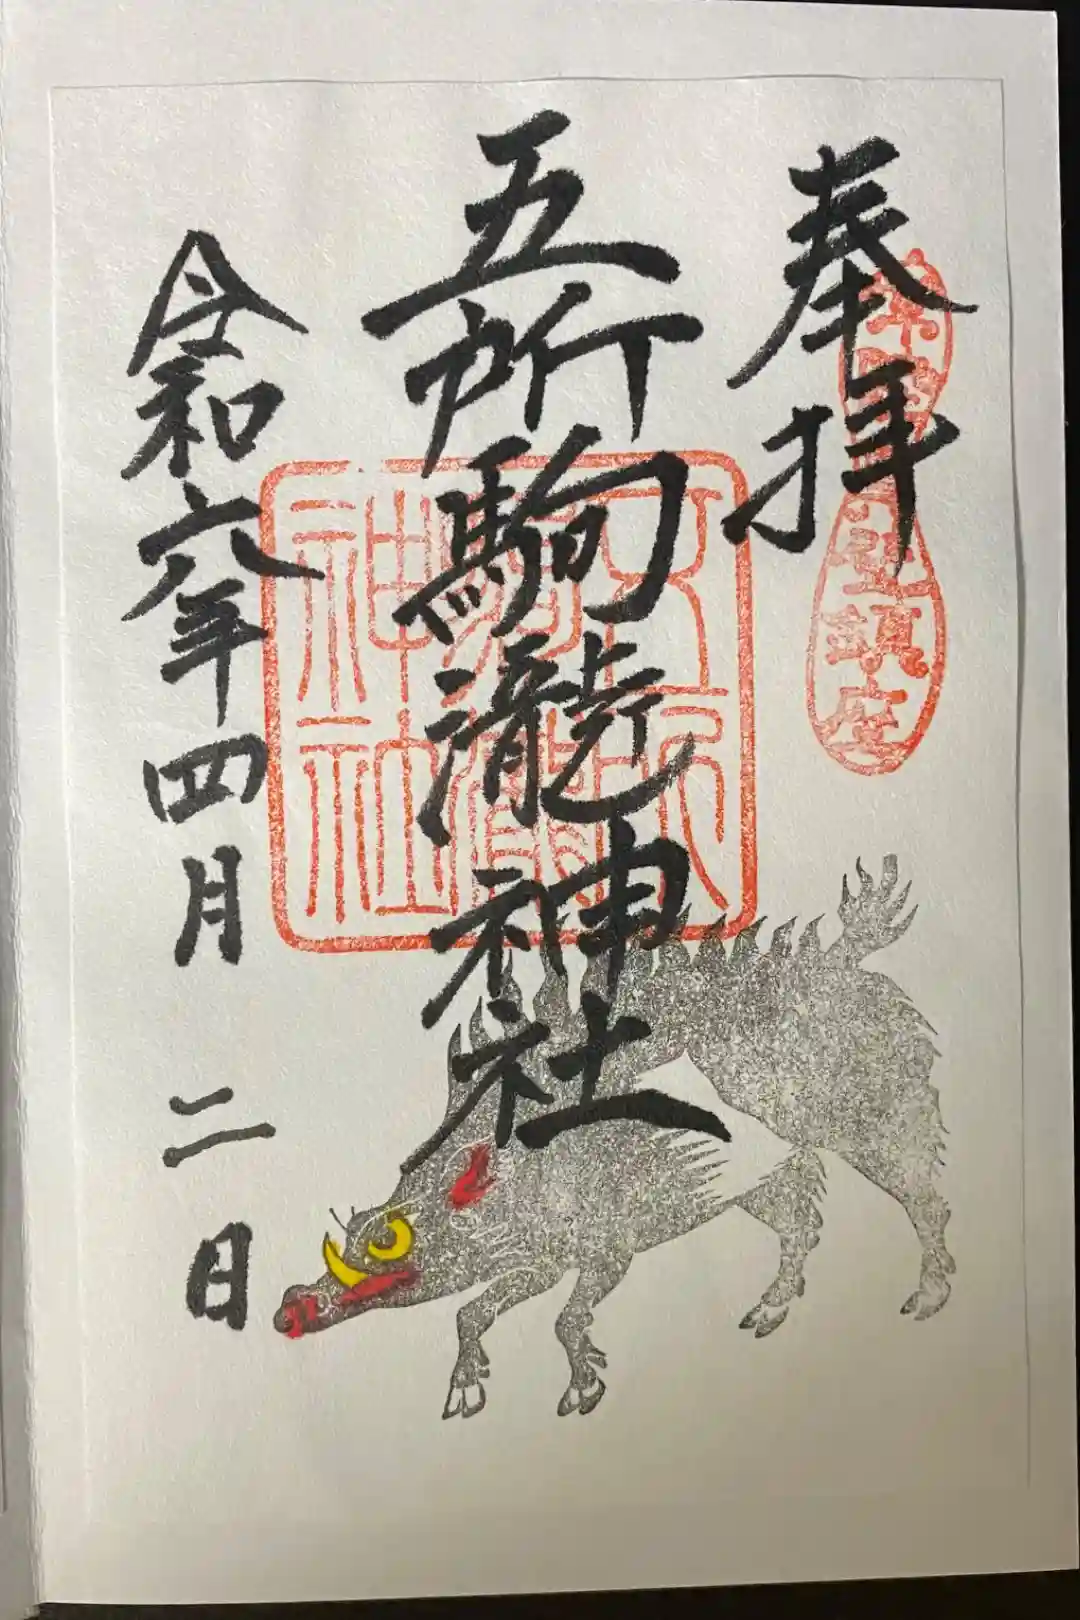 奉拝
五所駒瀧神社
令和六年四月二日
五所駒瀧神社